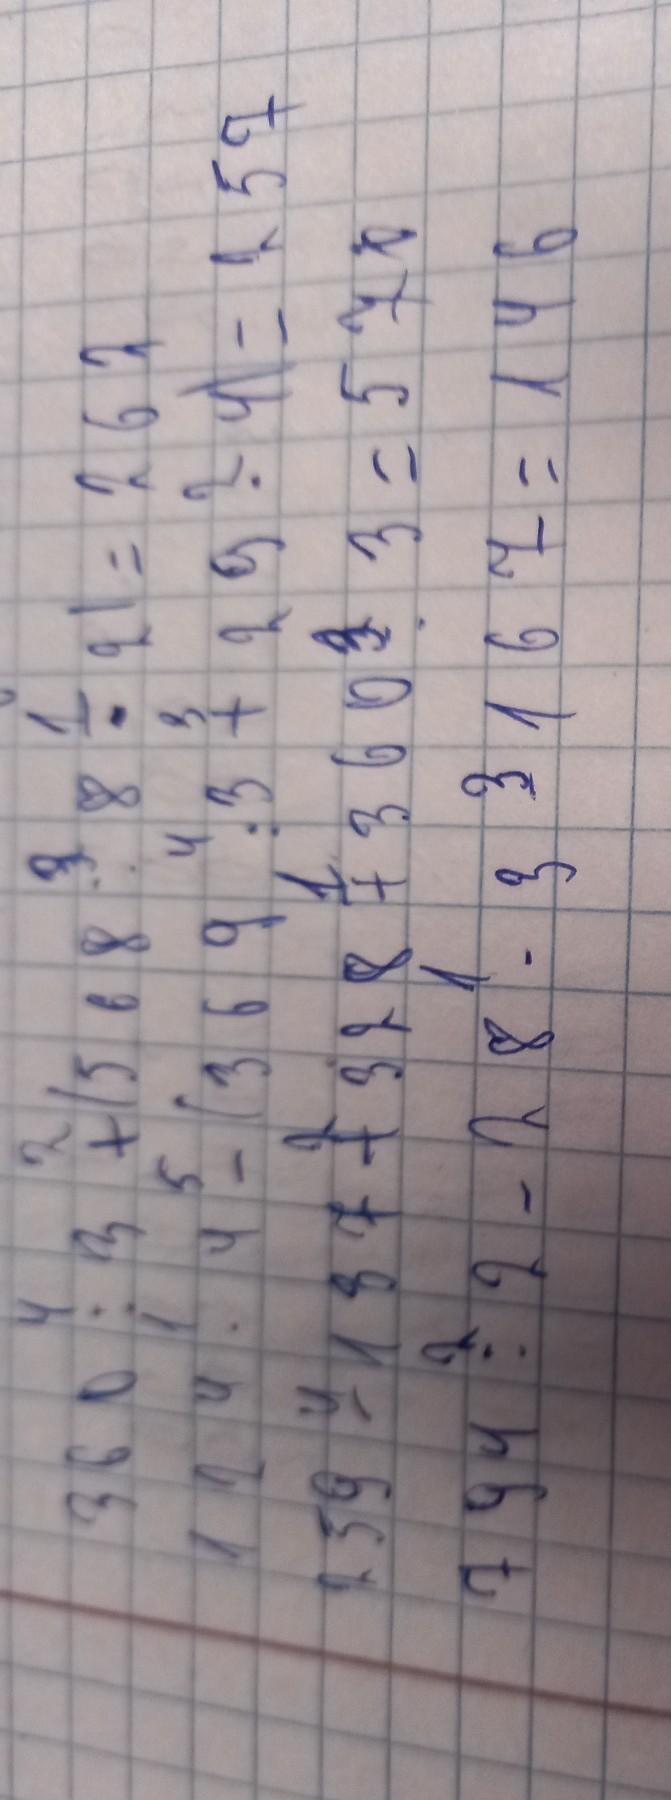 4 2 3 1
360 : 3 + (568 : 8 · 2) = 262
1 5 4 3 2
124 · 4 - (369 : 3 + 29 · 4) = 257
4 2 1 3
259 - 137 + 328 + 360 : 3 = 572
2 1 3
794 : 2 - 28 - 3 167 = 146